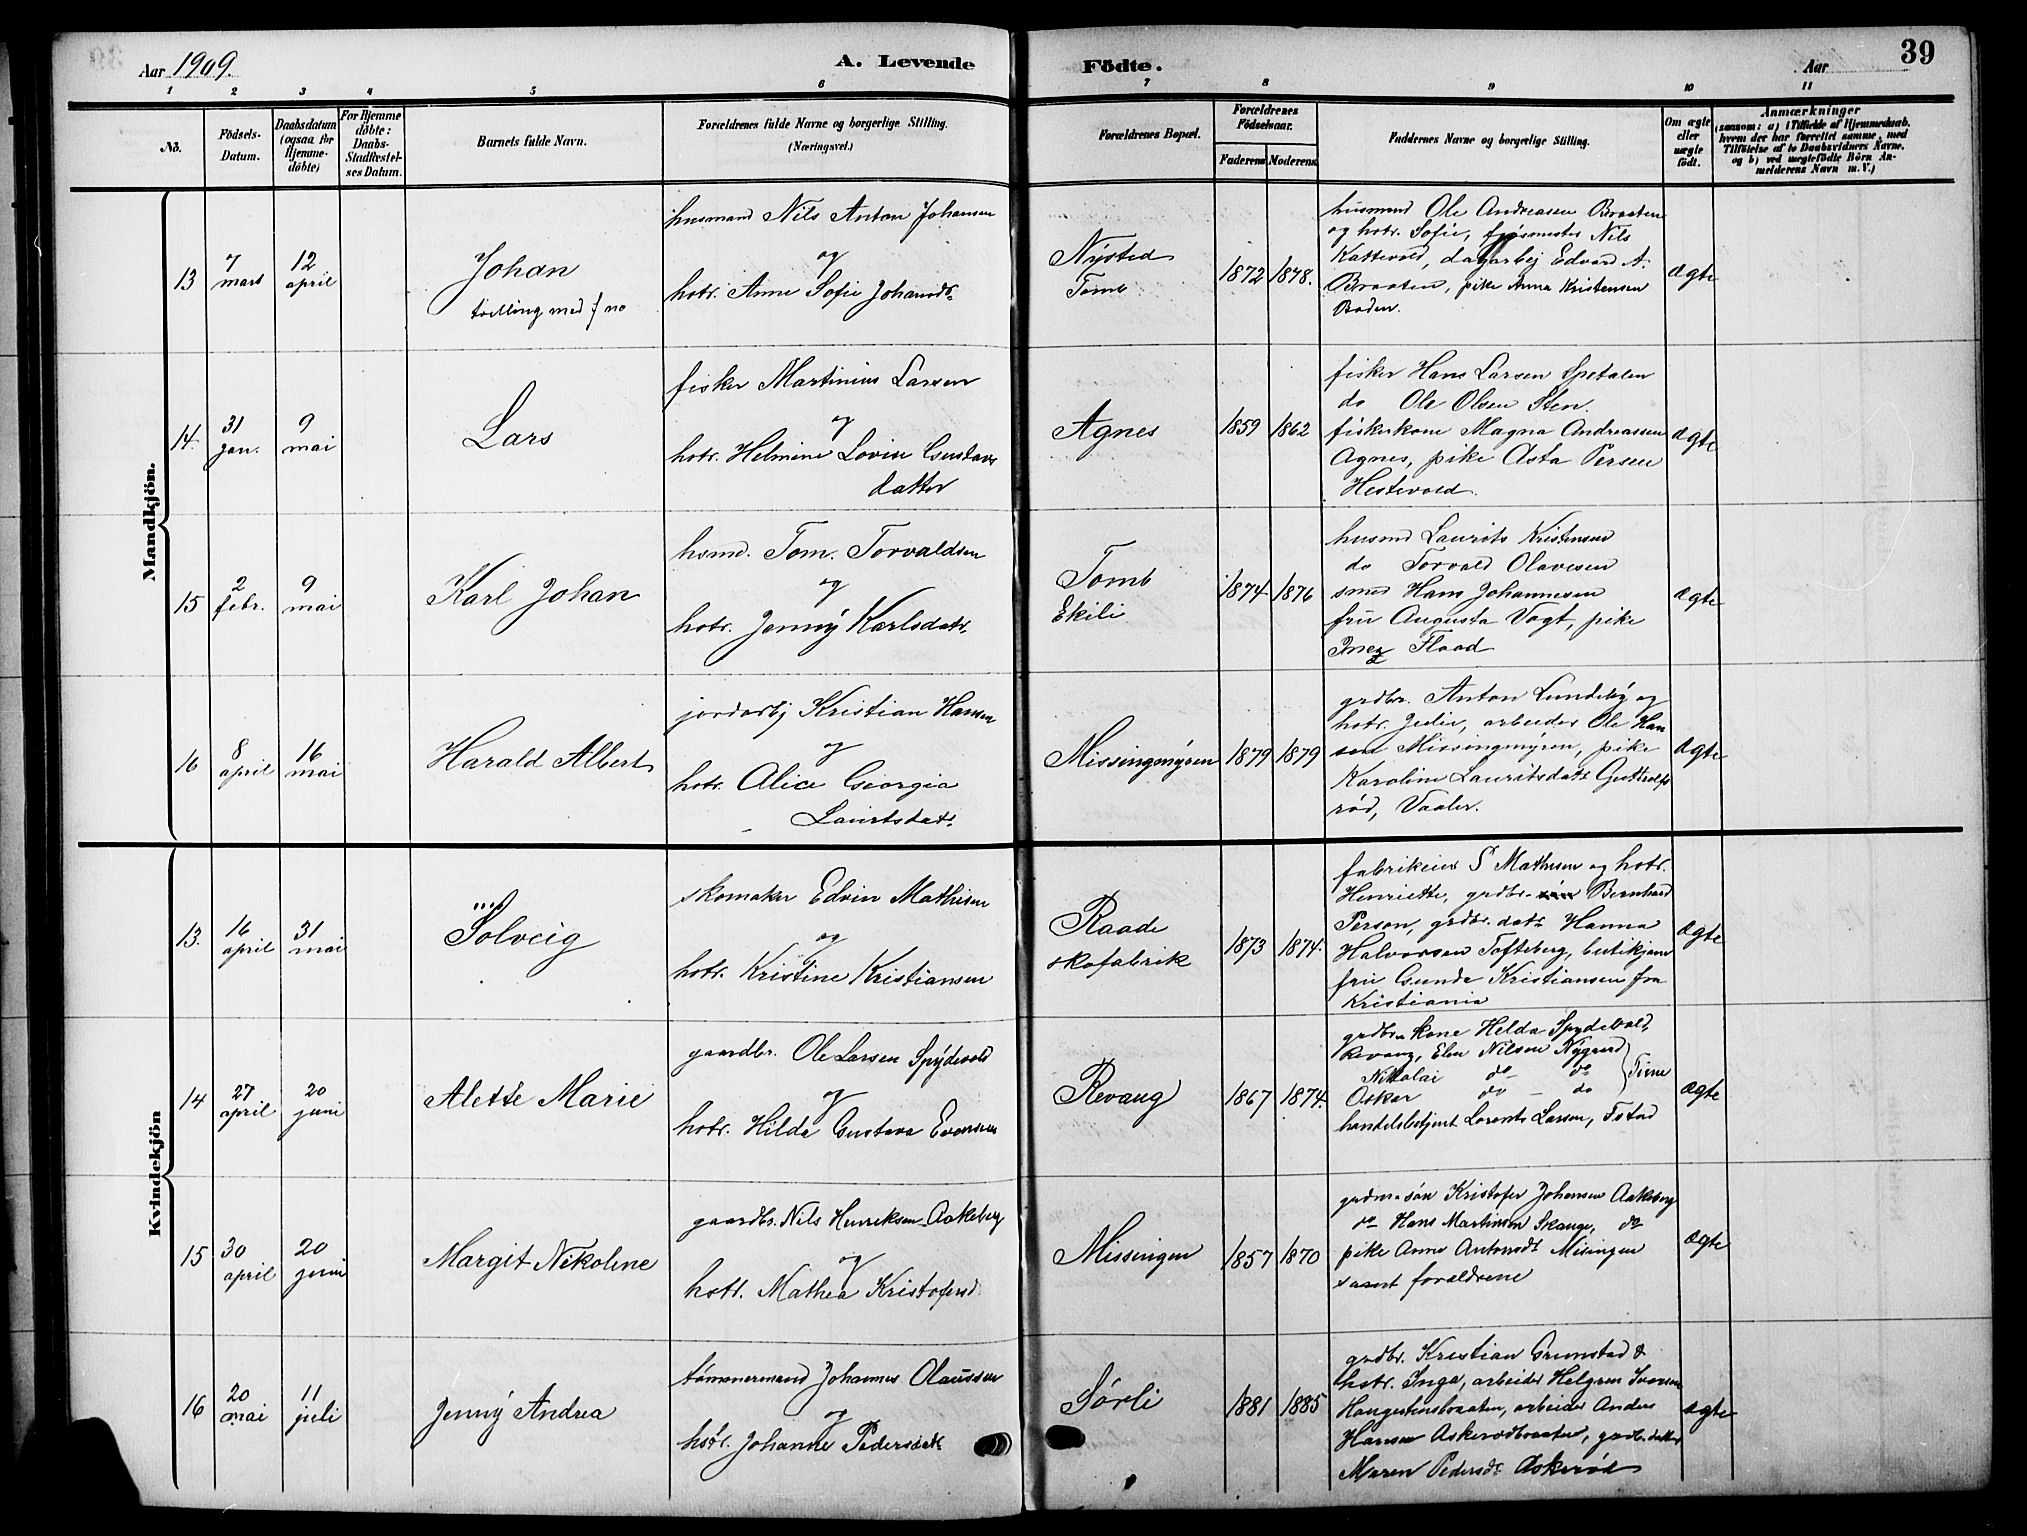 Aar 1909.
A. Levende
Födte.
Aar
39
1 2 3 4 5 6 7 8 9 10 11
No.
Födsels-
Datum.
Daabsdatum
(ogsaa for
Hjemme-
döbte)
For Hjemme
döbte:
Daabs-
Stadfæstel-
ses Datum.
Barnets fulde Navn.
Forældrenes fulde Navne og borgerlige Stilling.
(Næringsvei.)
Forældrenes Bopæl.
Forældrenes
Födselsaar.
Faderens
Moderens
Faddernes Navne og borgerlige Stilling.
Om ægte
eller
uægte
födt.
Anmærkninger
(saasom: a) i Tilfælde af Hjemmedaab,
hvem der har forrettet samme, med
Tilföielse af to Daabsvidners Navne.
og b) ved uægtefödte Börn An-
melderens Navn m. V.)
Mandkjön.
13
7
mars
12
april
Johan
tvilling med f no
husmand Nils Anton Johansen
og
hstr. Anne Sofie Johansdr.
Nysted
Tomb
1872
1878.
husmand Ole Andreasen Braaten
og hstr. Sofie, fjøsmester Nils
Kattevold, dagarbej Edvard A.
Braaten, pike Anna Kristensen
Boden.
ægte
14.
31
jan.
9
mai
Lars
fisker Martinius Larsen
og
hstr. Helmine Lovise Gustavs
datter
Agnes
1859
1862
fisker Hans Larsen Spetalen
do Ole Olsen Sten.
fiskerkone Magna Andreassen
Agnes, pike Asta Persen
Hestevold.
ægte
15
2
febr.
9
mai
Karl Johan
husmd. Tom. Torvaldsen
og
hstr. Jenny Karlsdatr.
Tomb
Ekili
1874
1876
husmd Laurits Kristensen
do Torvald Olavesen
smed Hans Johannesen
fru Augusta Vogt, pike
Inez Flood
ægte
16
8
april
16
mai
Harald Albert
jordarbj Kristian Hansen
og
hstr. Alice Georgia
Lauritsdatr.
Missingmyren
1879
1879
grdbr. Anton Lundeby og
hstr. Julie, arbeider Ole Han
sen Missingmyren, pike
Karoline Lauritsdatr
rød, Vaaler.
ægte
Kvindekjön
13.
16
april
31
mai
Solveig
skomaker Edvin Mathisen
og
hstr. Kristine Kristiansen
Raade
skofabrik
1873
1874.
fabrikeier S Mathisen og hstr.
Henriette, grdbr. Bernhard
Person, grdbr. datr Hanna
Halvorsen Tofteberg, butikjom
fru Gunda Kristiansen fra
Kristiania
ægte
14
27
april
20
juni
Alette Marie
gaardbr. Ole Larsen Spydevold
og
hstr. Hilda Gustava Evensen
Revaug
1867
1874.
grdbr. kone Helda Spydevold,
Revaug, Elen Nilsen Nygaard
Nikolai do do
Oskar do do
handelsbetjent Lorents Larsen,
ægte
15
30
april
20
juni
Margit Nikoline
gaardbr. Nils Henriksen Aakeberg
og
hstr. Mathea Kristofersd
Missingen
1857
1870
grdm. søn Kristofer Johansen Aakeberg
do Hans Martinsen Skauge, do
pike Anne Antonsdt Misingen
samt forældrene
ægte
16
20
mai
11
juli
Jenny Andrea
tømmermand Johannes Olaussen
og
hstr. Johanne Pedersdatr
Sørli
1881
1885
grdbr. Kristian Grimstad &
hstr. Inga, arbeider Helgesen Iversen
Haugertensbraaten, arbeider Anders
Hansen Askerødbraaten, grdb. datter
Maren Pedersdr. Askerød
ægte